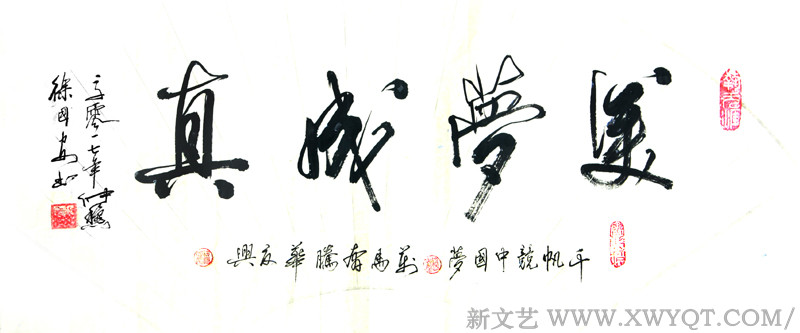 美夢成真
千帆競中国夢萬馬奔騰華夏興
二零一七年仲
徐国安书
新文艺 WWW.XWYQT.COM/